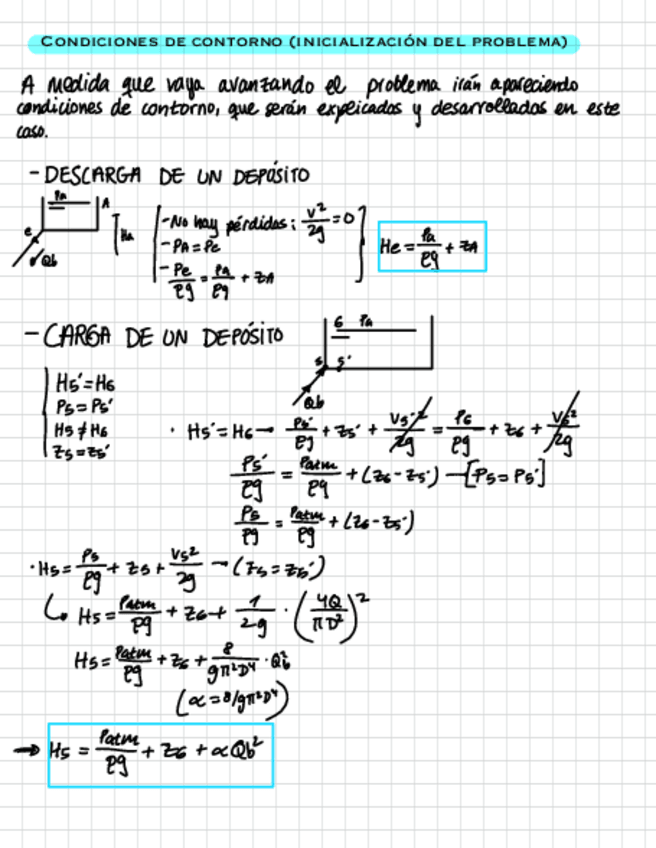 CONDICIONES DE CONTORNO (INICIALIZACIÓN DEL PROBLEMA)
A medida que vaya avanzando el problema irán apareciendo
condiciones de contorno, que serán explicadas y desarrolladas en este
caso.
- DESCARGA DE UN DEPÓSITO
Pa A
e Ha
Qb
- No hay pérdidas; v²/2g = 0
- PA = Pe
- Pe/ρg = Pa/ρg + ZA
He = Pa/ρg + ZA
- CARGA DE UN DEPÓSITO
6 Pa
5 5'
Qb
H5' = H6
P5 = P5'
H5 ≠ H6
Z5 = Z5'
· H5' = H6 → P5'/ρg + Z5' + V5'²/2g = P6/ρg + Z6 + V6²/2g
P5'/ρg = Patm/ρg + (Z6 - Z5') → [P5 = P5']
P5/ρg = Patm/ρg + (Z6 - Z5')
· H5 = P5/ρg + Z5 + V5²/2g → (Z5 = Z5')
↳ H5 = Patm/ρg + Z6 + 1/2g · (4Q/πD²)²
H5 = Patm/ρg + Z6 + 8/gπ²D⁴ · Qb²
(α = 8/gπ²D⁴)
→ H5 = Patm/ρg + Z6 + αQb²